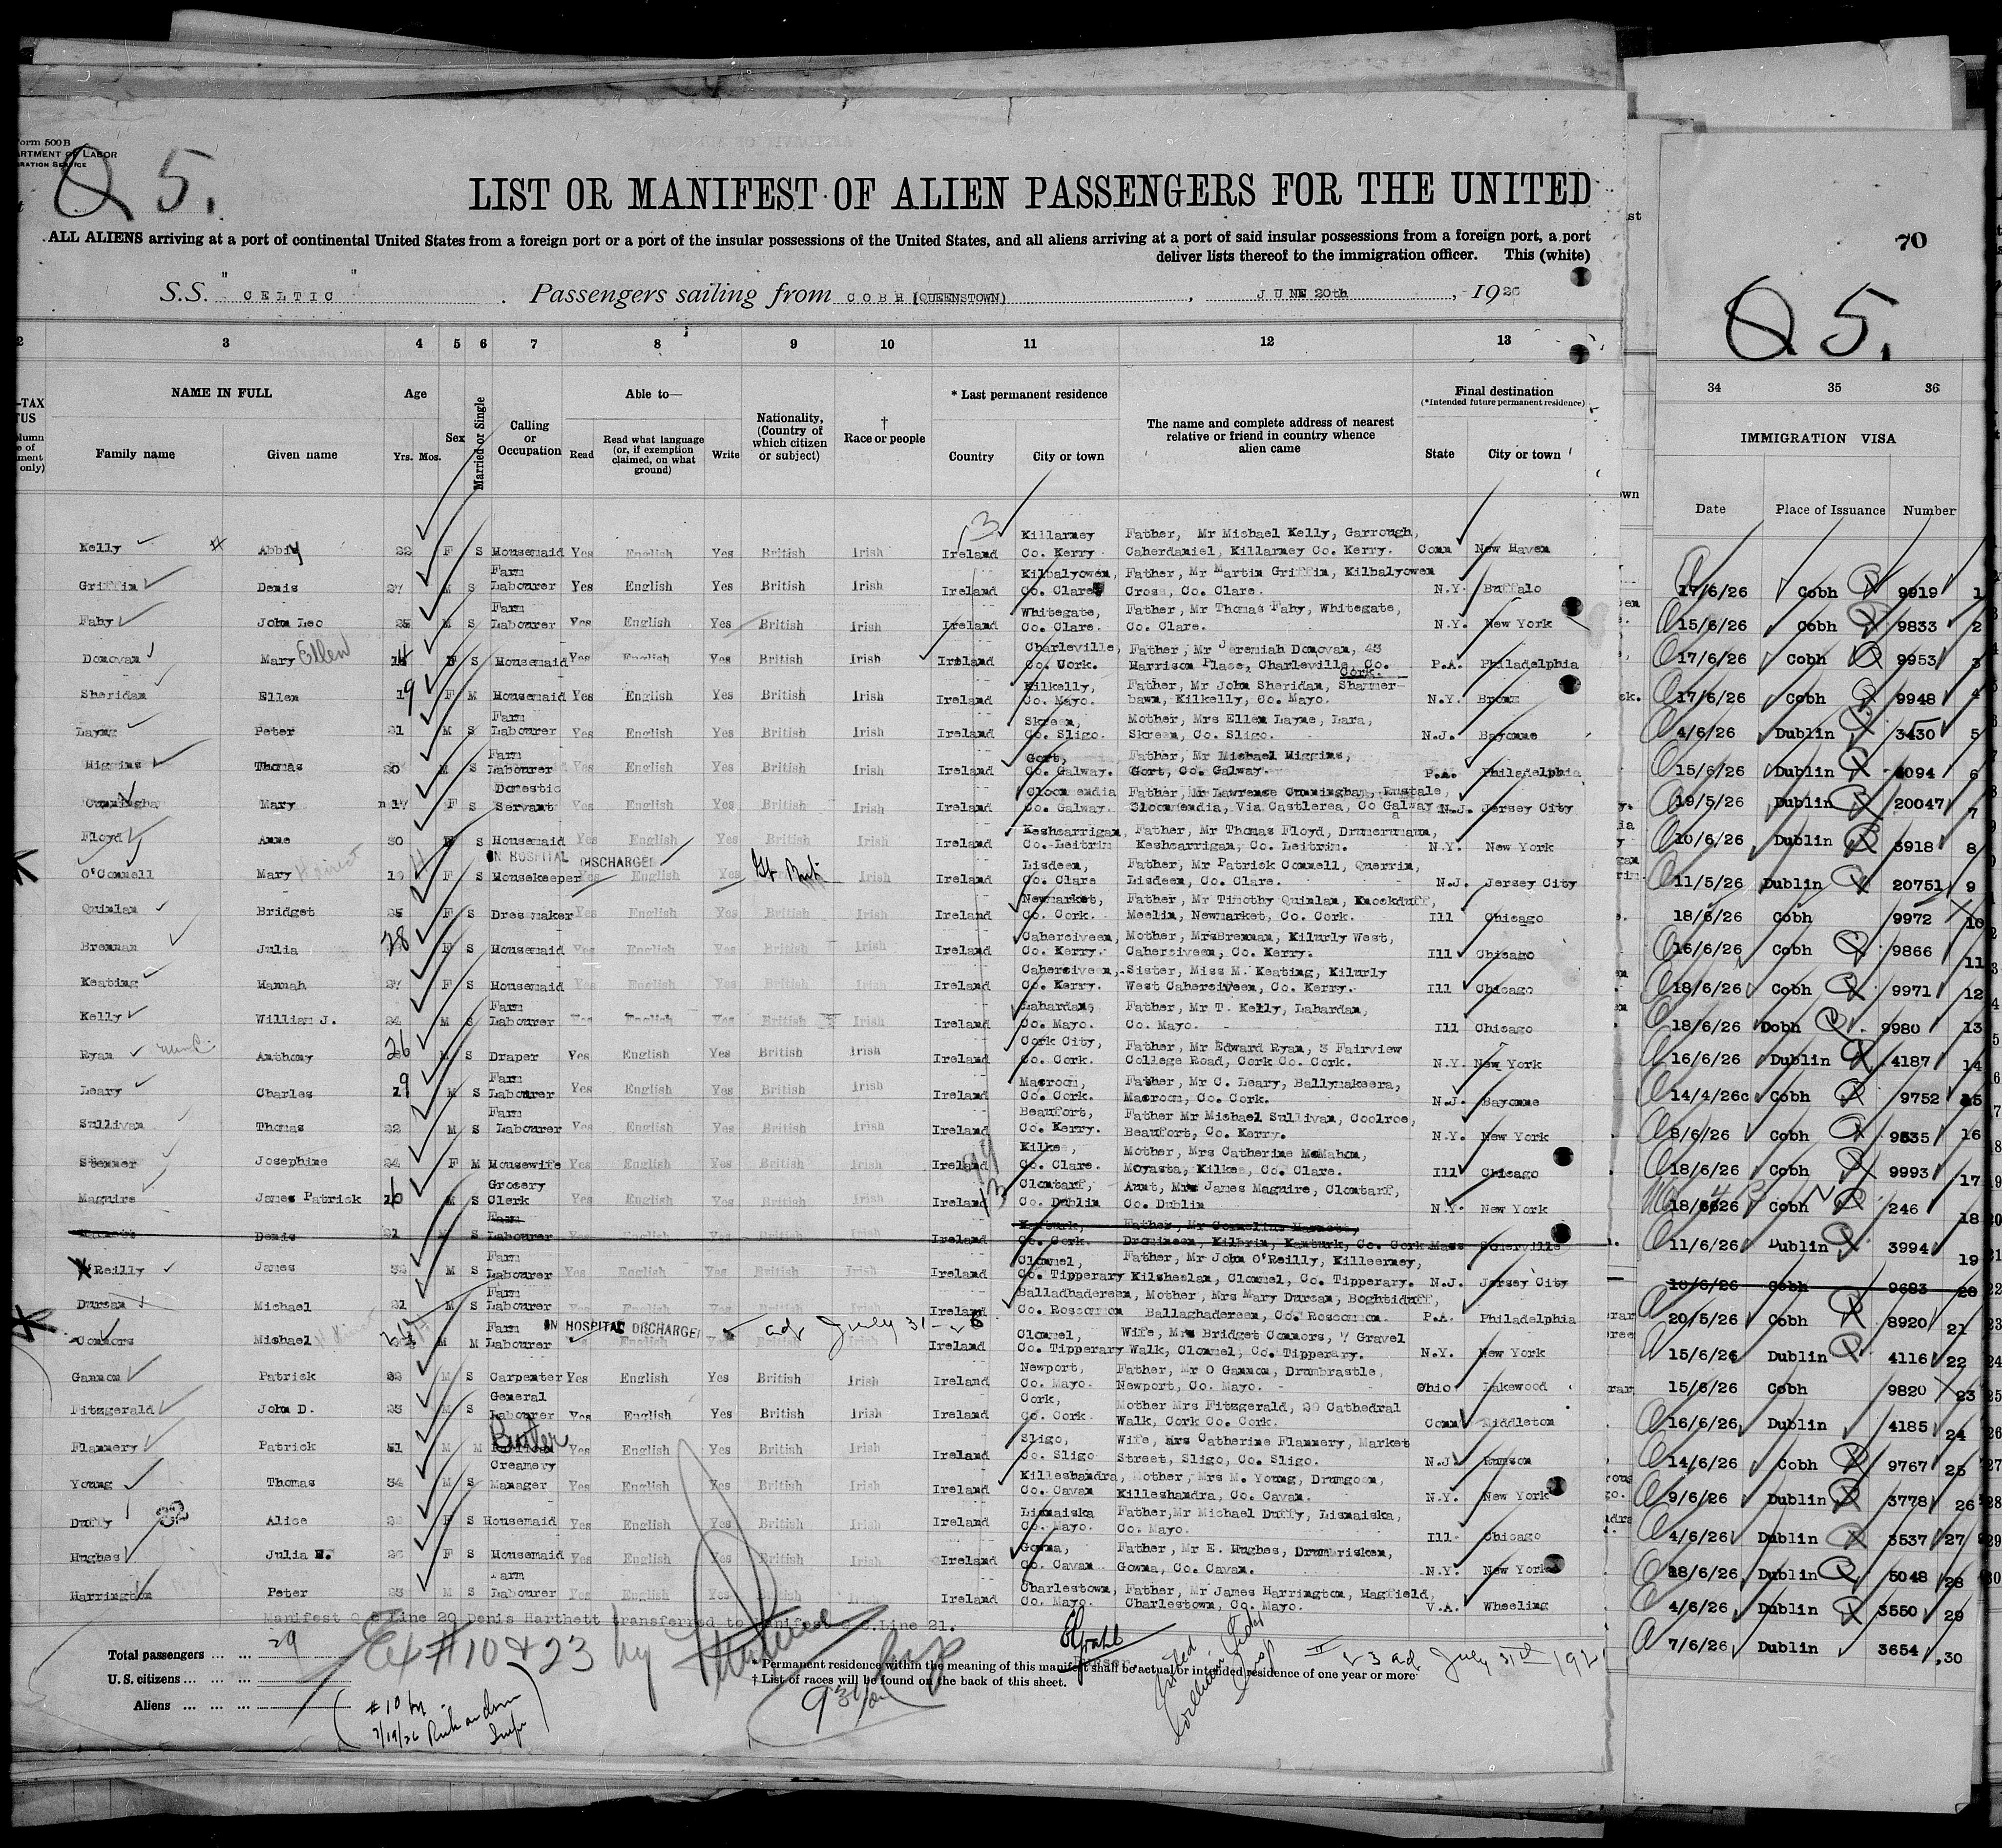 Form 500 B
DEPARTMENT OF LABOR
IMMIGRATION SERVICE
Q 5.
LIST OR MANIFEST OF ALIEN PASSENGERS FOR THE UNITED
ALL ALIENS arriving at a port of continental United States from a foreign port or a port of the insular possessions of the United States, and all aliens arriving at a port of said insular possessions from a foreign port, a port
deliver lists thereof to the immigration officer. This (white)
S.S. " CELTIC " . Passengers sailing from COBH (QUEENSTOWN) , JUNE 20th , 1926
2 3 4 5 6 7 8 9 10 11 12 13
NAME IN FULL Age Sex Married or Single Calling or Occupation Able to— Nationality, (Country of which citizen or subject) † Race or people * Last permanent residence The name and complete address of nearest relative or friend in country whence alien came Final destination (*Intended future permanent residence)
Family name Given name Yrs. Mos. Read Read what language (or, if exemption claimed, on what ground) Write Country City or town State City or town
Kelly Abby 22 F S Housemaid Yes English Yes British Irish Ireland Killarney Co. Kerry Father, Mr Michael Kelly, Garrough, Caherdaniel, Killarney Co. Kerry. Conn New Haven
Griffin Denis 27 M S Farm Labourer Yes English Yes British Irish Ireland Kilbalyowen, Co. Clare Father, Mr Martin Griffin, Kilbalyowen Cross, Co. Clare. N.Y. Buffalo
Fahy John Leo 25 M S Farm Labourer Yes English Yes British Irish Ireland Whitegate, Co. Clare. Father, Mr Thomas Fahy, Whitegate, Co. Clare. N.Y. New York
Donovan Mary Ellen S Housemaid Yes English Yes British Irish Ireland Charleville, Co. Cork. Father, Mr Jeremiah Donovan, 43 Harrison Place, Charleville, Co. Cork. P.A. Philadelphia
Sheridan Ellen 19 F M Housemaid Yes English Yes British Irish Ireland Kilkelly, Co. Mayo. Father, Mr John Sheridan, Shammerbawn, Kilkelly, Co. Mayo. N.Y. Bronx
Layng Peter 21 M S Farm Labourer Yes English Yes British Irish Ireland Skreen, Co. Sligo. Mother, Mrs Ellen Layne, Lara, Skreen, Co. Sligo. N.J. Bayonne
Higgins Thomas 20 M S Farm Labourer Yes English Yes British Irish Ireland Gort, Co. Galway. Father, Mr Michael Higgins, Gort, Co. Galway. P.A. Philadelphia
Mary 17 F S Domestic Servant Yes English Yes British Irish Ireland Cloonendia Co. Galway. Father, Mr Lawrence Cunningham, Cloonendia, Via Castlerea, Co Galway N.J. Jersey City
Floyd Anne 20 S Housemaid Yes English Yes British Irish Ireland Keshcarrigan, Co. Leitrim Father, Mr Thomas Floyd, Keshcarrigan, Co. Leitrim. N.Y. New York
IN HOSPITAL DISCHARGED
O'Connell Mary 19 F S Housekeeper Yes English Yes Irish Ireland Lisdeen, Co. Clare Father, Mr Patrick Connell, Querrin, Lisdeen, Co. Clare. N.J. Jersey City
Quinlan Bridget 25 F S Dressmaker Yes English Yes British Irish Ireland Newmarket, Co. Cork. Father, Mr Timothy Quinlan, Knockduff, Meelin, Newmarket, Co. Cork. Ill Chicago
Brennan Julia 28 F S Housemaid Yes English Yes British Irish Ireland Caherciveen, Co. Kerry. Mother, MrsBrennan, Kilurly West, Caherciveen, Co. Kerry. Ill Chicago
Keating Hannah 27 F S Housemaid Yes English Yes British Irish Ireland Caherciveen, Co. Kerry. Sister, Miss M. Keating, Kilurly West Caherciveen, Co. Kerry. Ill Chicago
Kelly William J. 24 M S Farm Labourer Yes English Yes British Irish Ireland Lahardan, Co. Mayo. Father, Mr T. Kelly, Lahardan, Co. Mayo. Ill Chicago
Ryan Anthony 26 M S Draper Yes English Yes British Irish Ireland Cork City, Co. Cork. Father, Mr Edward Ryan, 3 Fairview College Road, Cork Co. Cork. N.Y. New York
Leary Charles M S Farm Labourer Yes English Yes British Irish Ireland Macroom, Co. Cork. Father, Mr C. Leary, Ballymakeera, Macroom, Co. Cork. N.J. Bayonne
Sullivan Thomas 22 M S Farm Labourer Yes English Yes British Irish Ireland Beaufort, Co. Kerry. Father Mr Michael Sullivan, Coolroe, Beaufort, Co. Kerry. N.Y. New York
Stenner Josephine 24 F M Housewife Yes English Yes British Irish Ireland Kilkee, Co. Clare. Mother, Mrs Catherine McMahon, Moyasta, Kilkee, Co. Clare. Ill Chicago
Maguire James Patrick M S Grocery Clerk Yes English Yes British Irish Ireland Clontarf, Co. Dublin Aunt, Mrs James Maguire, Clontarf, Co. Dublin N.Y. New York
Denis 21 S Farm Labourer Ireland Kanturk, Co. Cork Father, Mr Cornelius Dromineen, Kilbrin, Kanturk, Co. Cork Mass Somerville
O'Reilly James M S Farm Labourer Yes English Yes British Irish Ireland Clonmel, Co. Tipperary Father, Mr John O'Reilly, Killeerney, Kilsheelan, Clonmel, Co. Tipperary. N.J. Jersey City
Durcan Michael 21 M S Farm Labourer Yes English Yes British Irish Ireland Balladhadereen, Co. Roscommon Mother, Mrs Mary Durcan, Boghtiduff, Ballaghadereen, Co. Roscommon. P.A. Philadelphia
IN HOSPITAL DISCHARGED adt July 31
Connors Michael M M Farm Labourer English Ireland Clonmel, Co. Tipperary Wife, Mrs Bridget Connors, 7 Gravel Walk, Clonmel, Co. Tipperary. N.Y. New York
Gannon Patrick M S Carpenter Yes English Yes British Irish Ireland Newport, Co. Mayo. Father, Mr O Gannon, Drumbrastle, Newport, Co. Mayo. Ohio Lakewood
Fitzgerald John D. 23 M S General Labourer Yes English Yes British Irish Ireland Cork, Co. Cork Mother Mrs Fitzgerald, 29 Cathedral Walk, Cork Co. Cork. Conn Middleton
Flannery Patrick 51 M M Butler Yes English Yes British Irish Ireland Sligo, Co. Sligo Wife, Mrs Catherine Flannery, Market Street, Sligo, Co. Sligo. N.J. Rumson
Young Thomas 34 M S Creamery Manager Yes English Yes British Irish Ireland Killeshandra, Co. Cavan Mother, Mrs M. Young, Drumgoon, Killeshandra, Co. Cavan. N.Y. New York
Duffy Alice F S Housemaid Yes English Yes British Irish Ireland Lismaiska Co. Mayo. Father, Mr Michael Duffy, Lismaiska, Co. Mayo. Ill. Chicago
Hughes Julia M. 26 F S Housemaid Yes English Yes British Irish Ireland Gowna, Co. Cavan Father, Mr E. Hughes, Drumbrisken, Gowna, Co. Cavan. N.Y. New York
Harrington Peter 23 M S Farm Labourer Yes English Yes British Irish Ireland Charlestown, Co. Mayo. Father, Mr James Harrington, Hagfield, Charlestown, Co. Mayo. V.A. Wheeling
Manifest Q 5 Line 20 Denis Harthett transferred to Manifest Line 21.
Total passengers 29
U.S. citizens
Aliens
Ex #10 & 23 by
#10 by 7/19/26 Richardson Inspr
* Permanent residence within the meaning of this manifest shall be actual or intended residence of one year or more
† List of races will be found on the back of this sheet.
Purser.
23 ad July 31st 192
70
Q 5.
34 35 36
IMMIGRATION VISA
Date Place of Issuance Number
17/6/26 Cobh 9919 1
15/6/26 Cobh 9833 2
17/6/26 Cobh 9953 3
17/6/26 Cobh 9948 4
4/6/26 Dublin 3430 5
15/6/26 Dublin 4094 6
19/5/26 Dublin 20047 7
10/6/26 Dublin 3918 8
11/5/26 Dublin 20751 9
18/6/26 Cobh 9972 10
16/6/26 Cobh 9866 11
18/6/26 Cobh 9971 12
18/6/26 Dobh 9980 13
16/6/26 Dublin 4187 14
14/4/26 Cobh 9752 15
8/6/26 Cobh 9535 16
18/6/26 Cobh 9993 17
Cobh 246 18
11/6/26 Dublin 3994 19
10/6/26 Cobh 9683 20
20/5/26 Cobh 8920 21
15/6/26 Dublin 4116 22
15/6/26 Cobh 9820 23
16/6/26 Dublin 4185 24
14/6/26 Cobh 9767 25
9/6/26 Dublin 3778 26
4/6/26 Dublin 3537 27
18/6/26 Dublin 5048 28
4/6/26 Dublin 3550 29
7/6/26 Dublin 3654 30